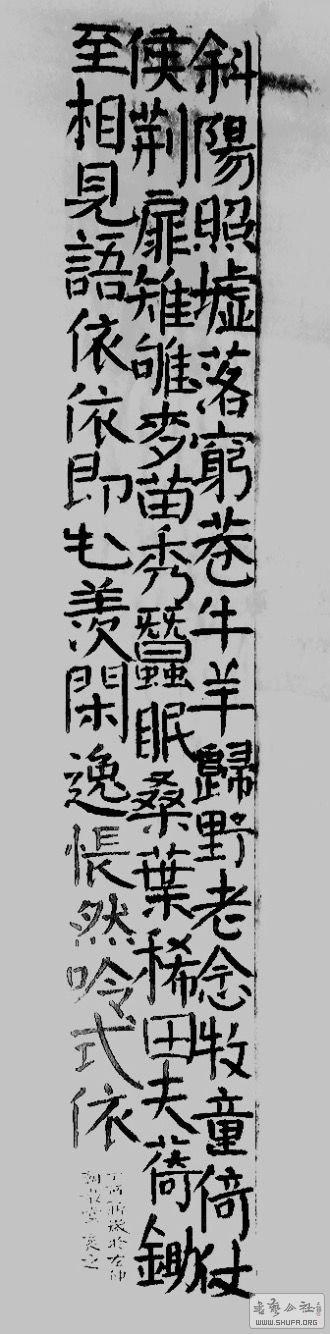 斜陽照墟落窮巷牛羊歸野老念牧童倚仗
侯荆扉雉雊麥苗秀蠶眠桑葉稀田夫荷鋤
至相見語依依即此羨閑逸悵然吟式依
WWW.SHUFA.ORG